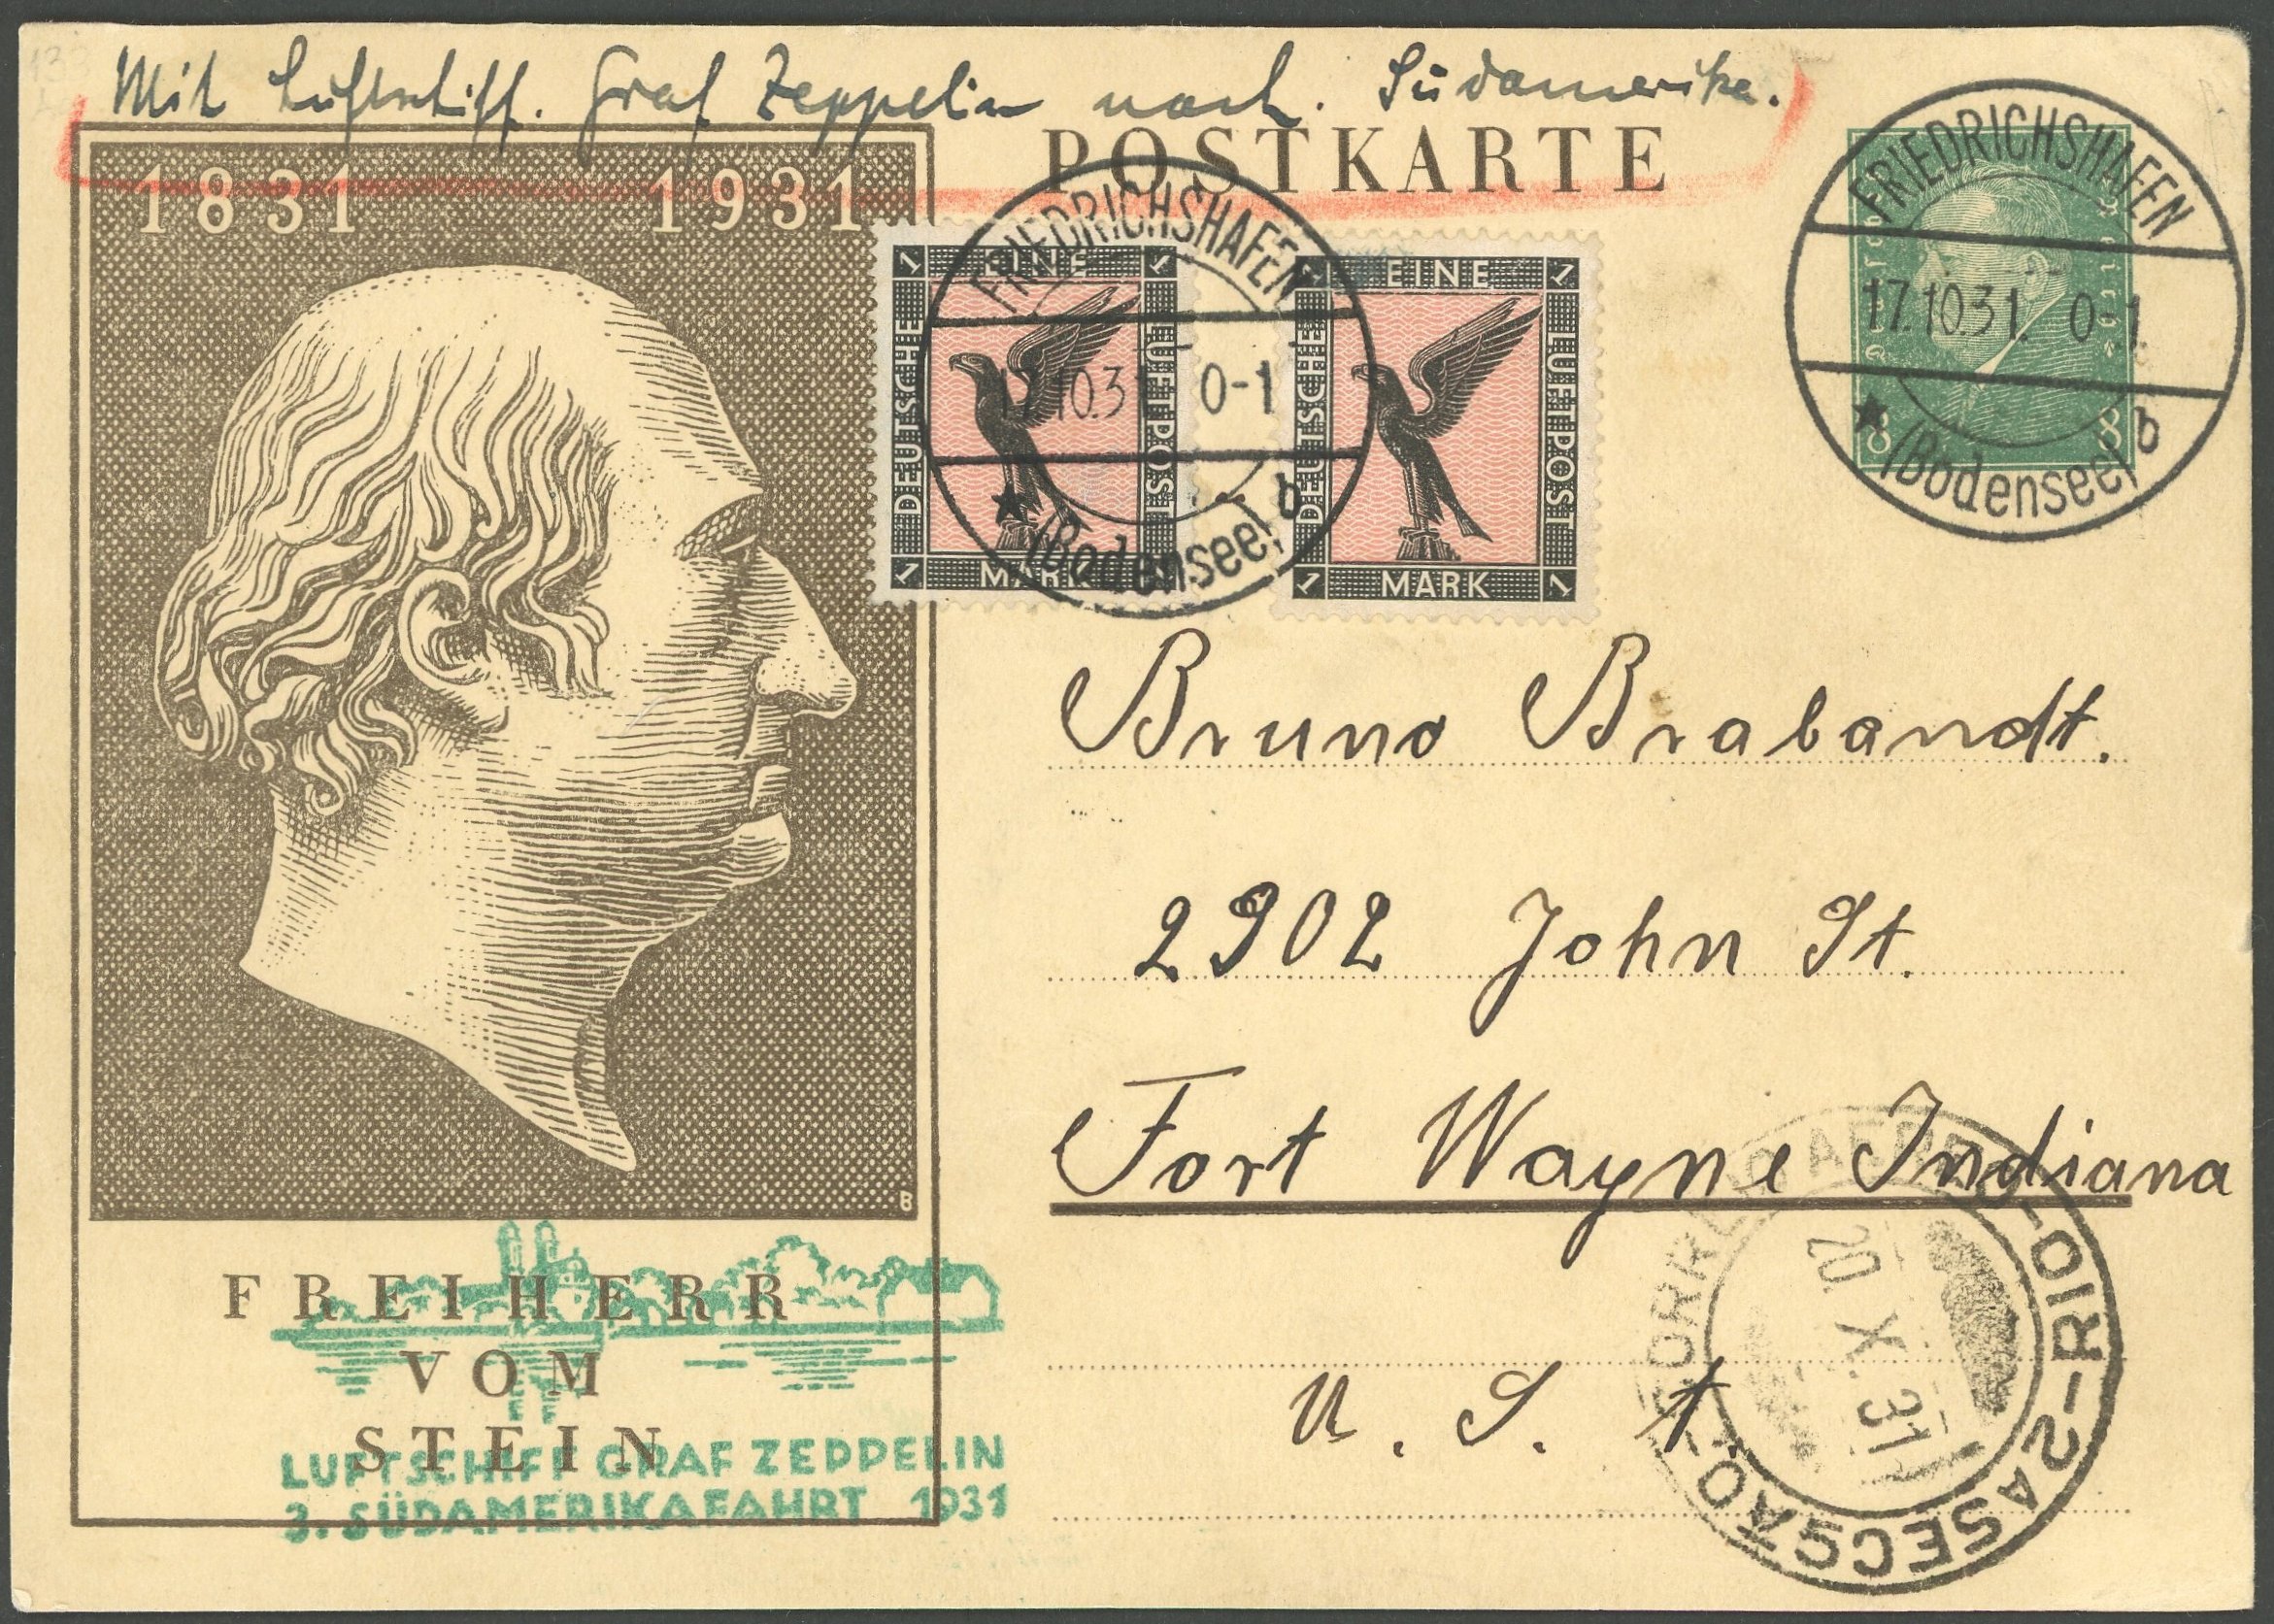 Mit Luftschiff. Graf Zeppelin nach. Südamerika.
1831 1931
POSTKARTE
FRIEDRICHSHAFEN
17.10.31. 0-1.
★ (Bodensee) b
8 8
FRIEDRICHSHAFEN
17.10.31 0-1
★ (Bodensee) b
1 EINE 1
DEUTSCHE
LUFTPOST
1 MARK
EINE 1
DEUTSCHE
LUFTPOST
1 MARK 1
Bruno Brabandt.
2902 John St.
Fort Wayne Indiana
U. S. A.
B
FREIHERR
VOM
STEIN
LUFTSCHIFF GRAF ZEPPELIN
3. SÜDAMERIKAFAHRT 1931
CORREIO AEREO-RIO-2A SECSÃO
20 X. 31